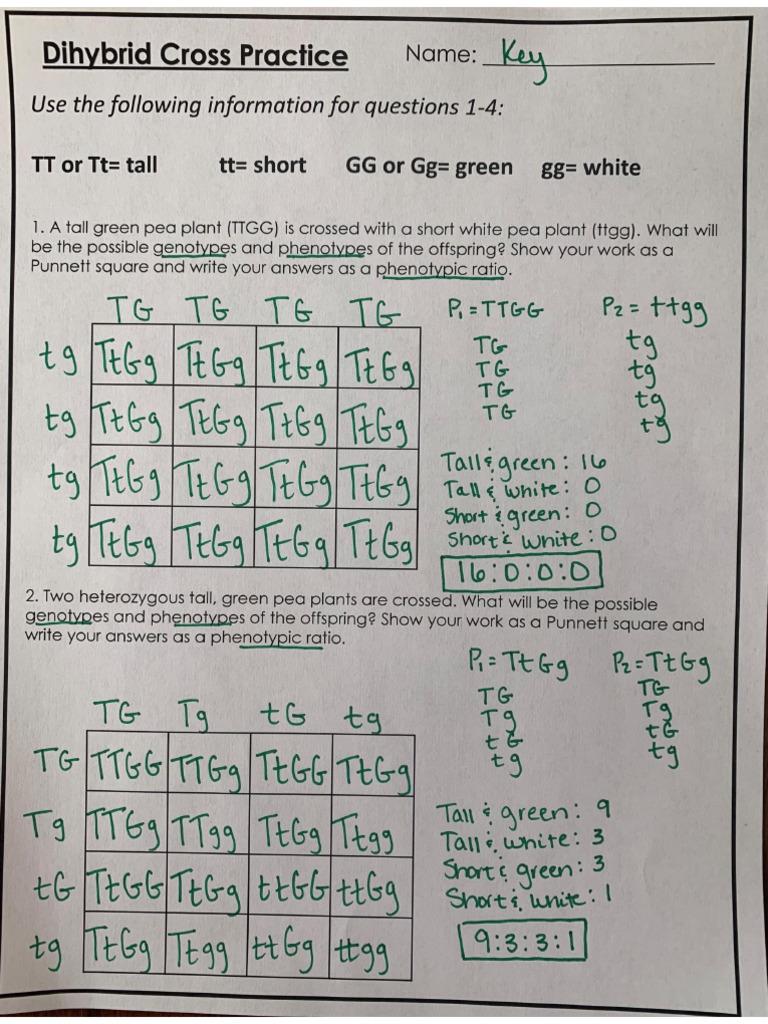 Dihybrid Cross Practice Name: Key
Use the following information for questions 1-4:
TT or Tt= tall tt= short GG or Gg= green gg= white
1. A tall green pea plant (TTGG) is crossed with a short white pea plant (ttgg). What will
be the possible genotypes and phenotypes of the offspring? Show your work as a
Punnett square and write your answers as a phenotypic ratio.
TG TG TG TG
tg TtGg TtGg TtGg TtGg
tg TtGg TtGg TtGg TtGg
tg TtGg TtGg TtGg TtGg
tg TtGg TtGg TtGg TtGg
P1 = TTGG P2 = ttgg
TG tg
TG tg
TG tg
TG tg
Tall & green: 16
Tall & white: 0
Short & green: 0
Short & white: 0
16:0:0:0
2. Two heterozygous tall, green pea plants are crossed. What will be the possible
genotypes and phenotypes of the offspring? Show your work as a Punnett square and
write your answers as a phenotypic ratio.
TG Tg tG tg
TG TTGG TTGg TtGG TtGg
Tg TTGg TTgg TtGg Ttgg
tG TtGG TtGg ttGG ttGg
tg TtGg Ttgg ttGg ttgg
P1 = TtGg P2 = TtGg
TG TG
Tg Tg
tG tG
tg tg
Tall & green: 9
Tall & white: 3
Short & green: 3
Short & white: 1
9:3:3:1